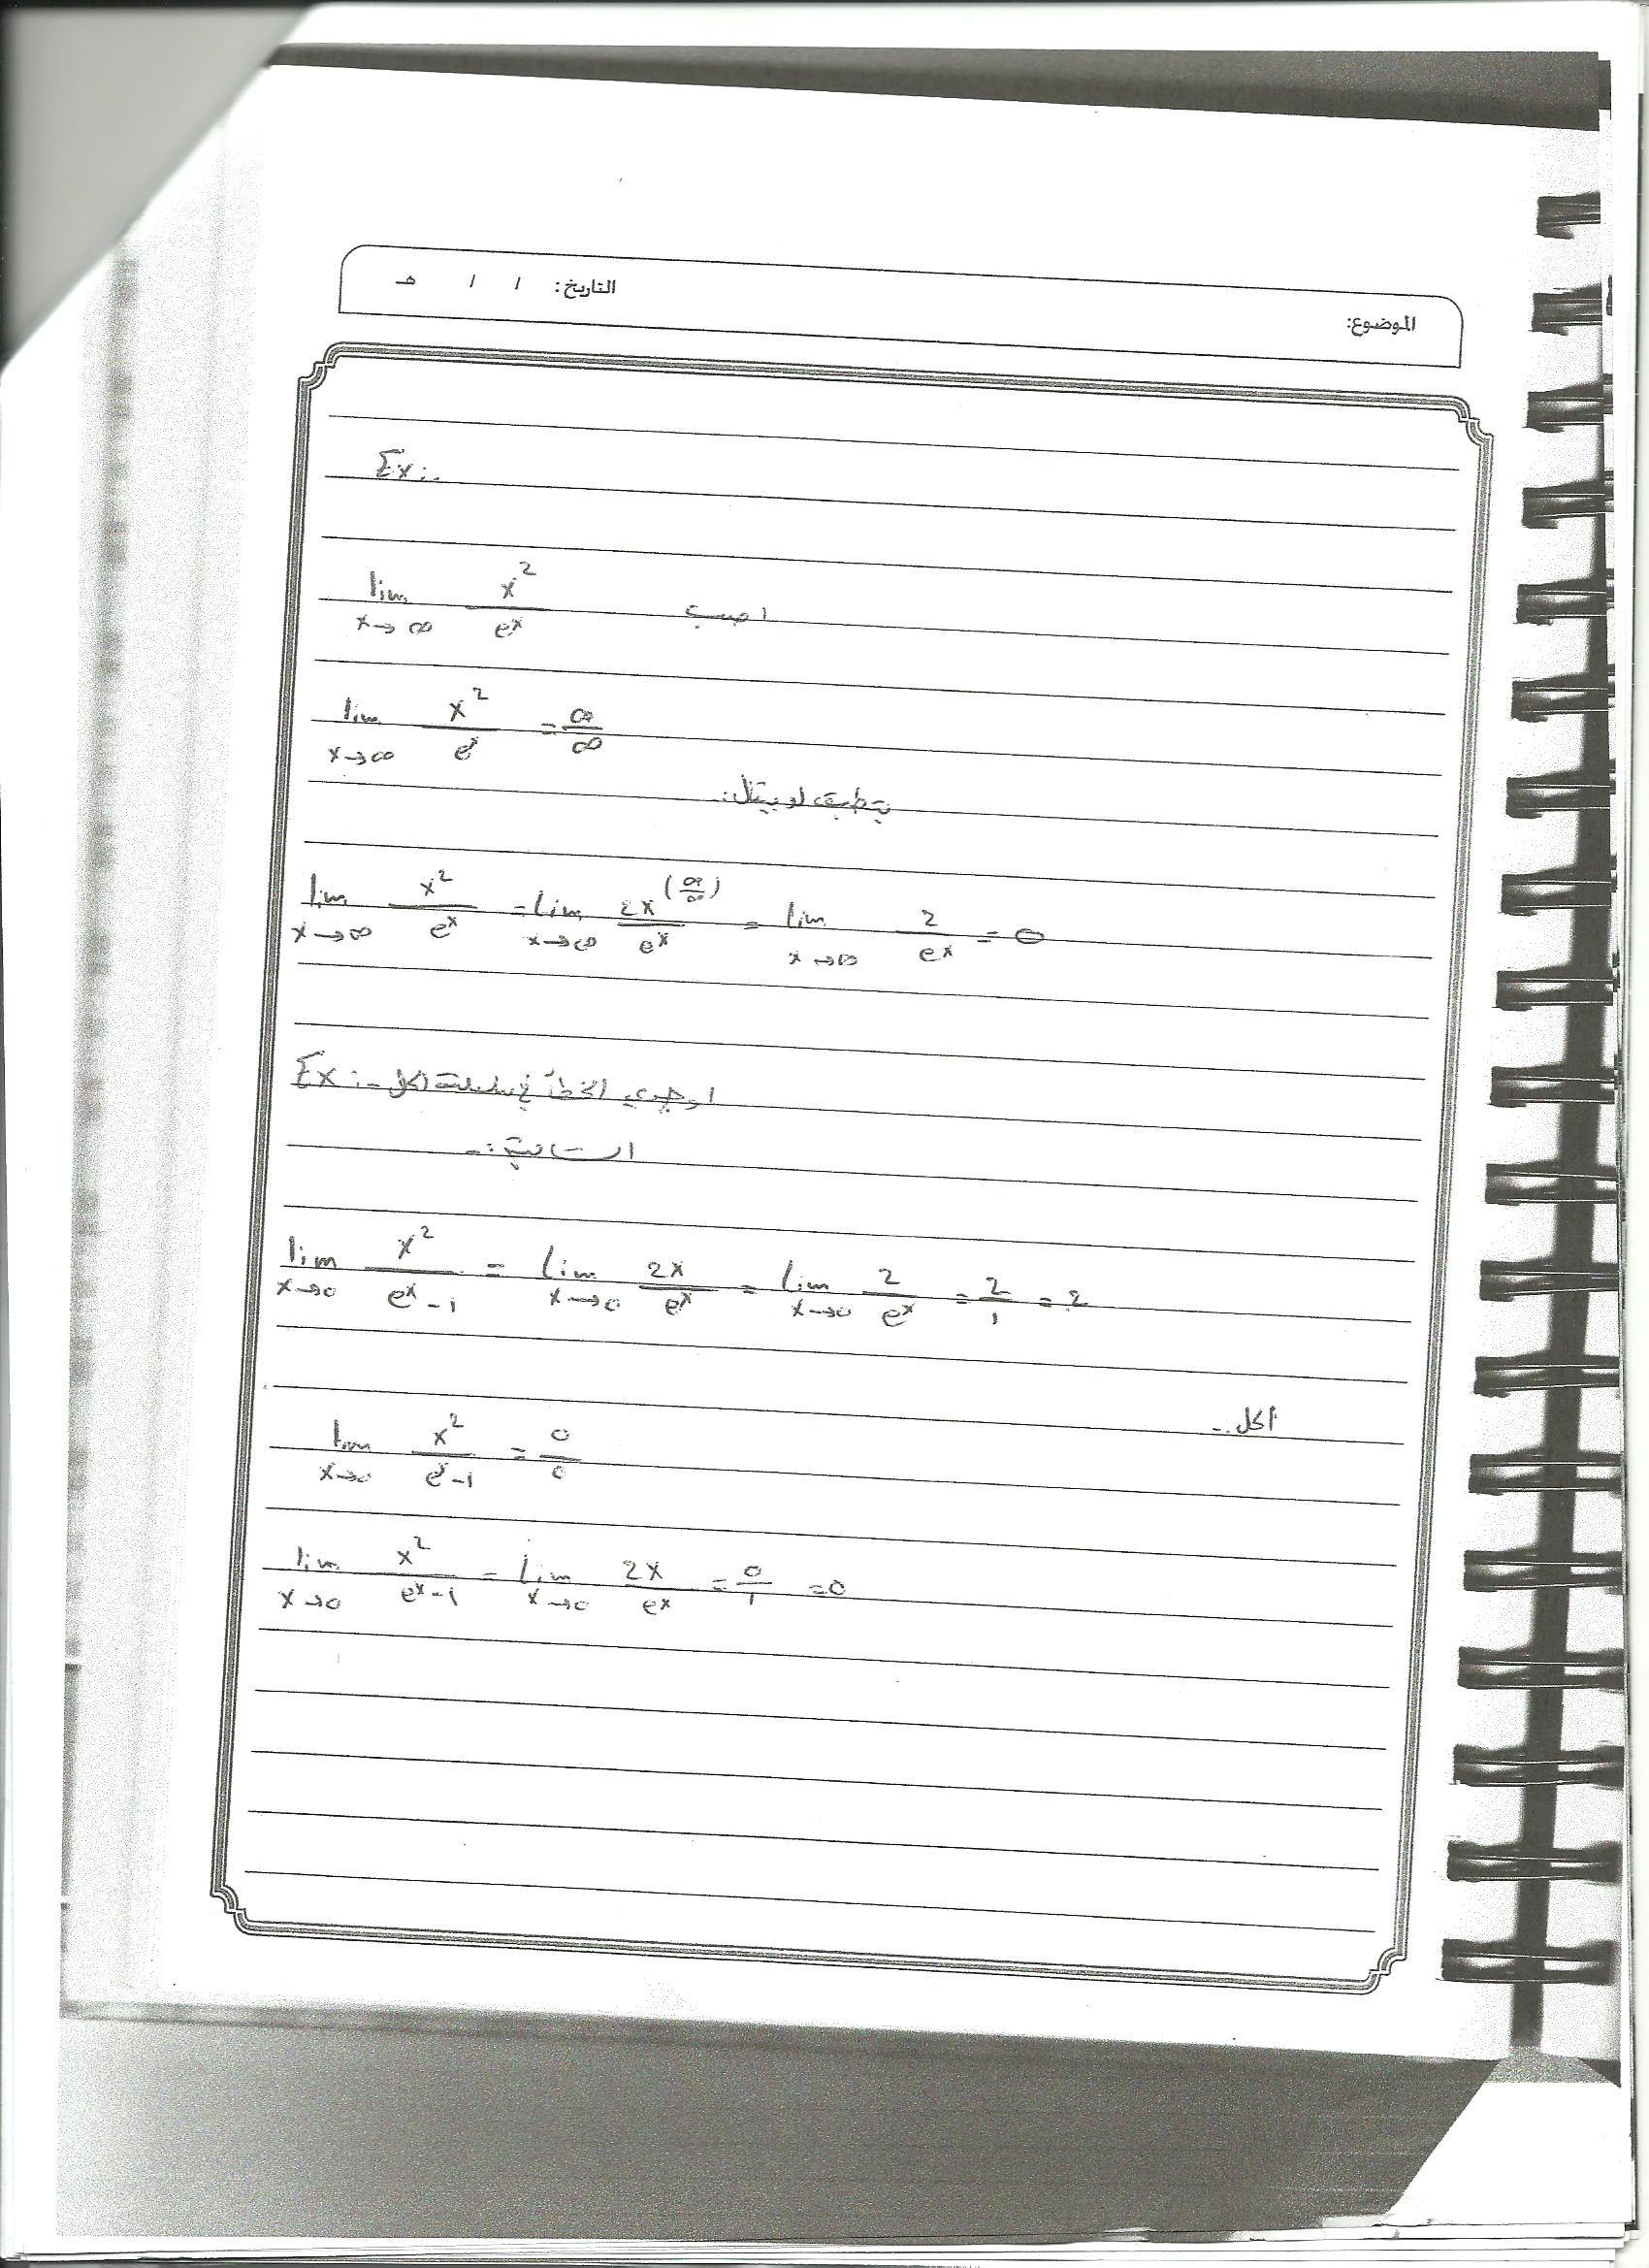 الموضوع:
التاريخ: / / هـ
Ex:-
lim x→∞ x²/eˣ احسب
lim x→∞ x²/eˣ = ∞/∞
بتطبيق لوبيتال:-
lim x→∞ x²/eˣ = lim x→∞ 2x/eˣ (∞/∞) = lim x→∞ 2/eˣ = 0
Ex:- اوجدي الخطأ في سلسلة الحل
التالية:-
lim x→0 x²/(eˣ-1) = lim x→0 2x/eˣ = lim x→0 2/eˣ = 2/1 = 2
الحل:-
lim x→0 x²/(eˣ-1) = 0/0
lim x→0 x²/(eˣ-1) = lim x→0 2x/eˣ = 0/1 = 0